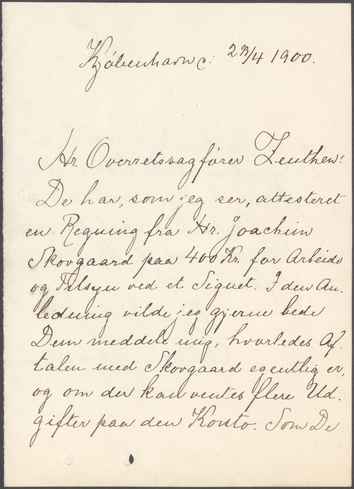 Kjøbenhavn C: 23/4 1900.
Hr Overretssagfører Zeuthen!
De har, som jeg ser, attesteret
en Regning fra Hr. Joachim
Skovgaard paa 400 Kr. for Arbeide
og Tilsyn ved et Signet. I den An-
ledning vilde jeg gjerne bede
Dem meddele mig, hvorledes Af-
talen med Skovgaard egentlig er,
og om der kan ventes flere Ud-
gifter paa den Konto. Som De